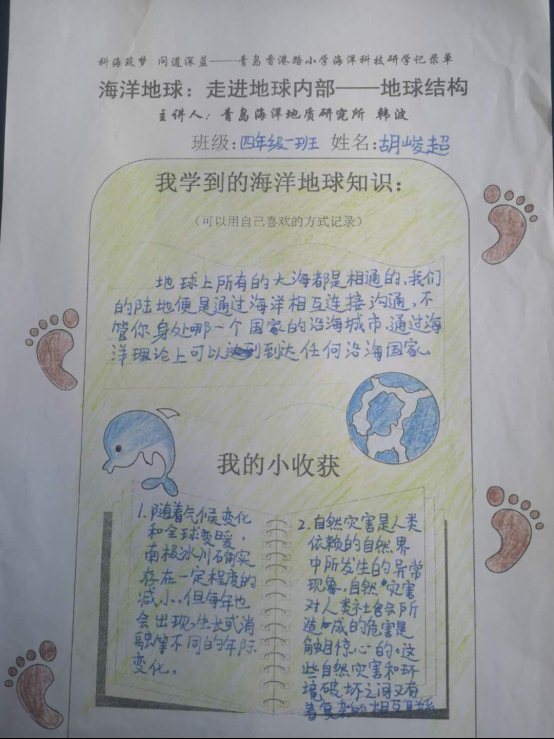 科海筑梦 问道深蓝——青岛香港路小学海洋科技研学记录单
海洋地球：走进地球内部——地球结构
主讲人：青岛海洋地质研究所 韩波
班级:四年级一班 姓名:胡峻超
我学到的海洋地球知识：
（可以用自己喜欢的方式记录）
地球上所有的大海都是相通的,我们
的陆地便是通过海洋相互连接沟通,不
管你身处哪一个国家的沿海城市,通过海
洋理论上可以到达任何沿海国家。
我的小收获
1.随着气候变化
和全球变暖,
南极冰川确实
存在一定程度的
减小,但每年也
会出现生长或消
融等不同的年际
变化。
2.自然灾害是人类
依赖的自然界
中所发生的异常
现象,自然灾害
对人类社会所
造成的危害是
触目惊心的。这
些自然灾害和环
境破坏之间又有
着复杂的相互联系